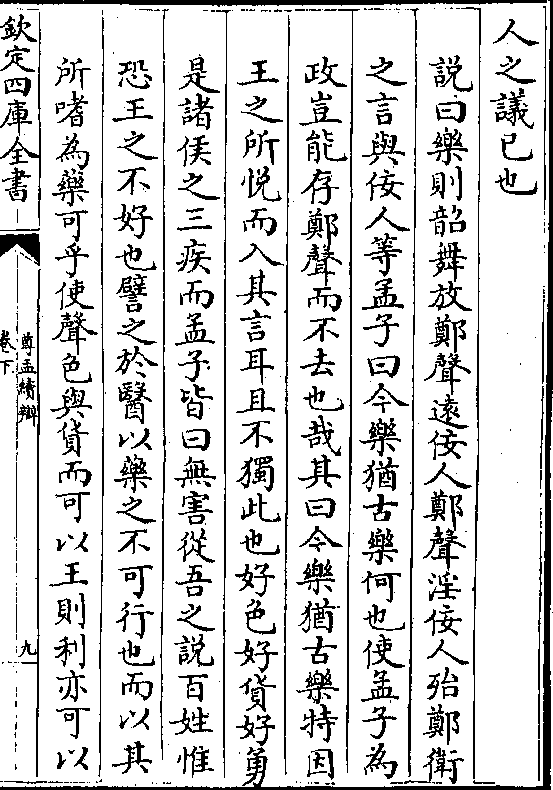 人之議已也
說曰樂則韶舞放鄭聲逺佞人鄭聲淫佞人殆鄭衛
之言與佞人等孟子曰今樂猶古樂何也使孟子為
政豈能存鄭聲而不去也哉其曰今樂猶古樂特因
王之所悦而入其言耳且不獨此也好色好貨好勇
是諸侯之三疾而孟子皆曰無害從吾之説百姓惟
恐王之不好也譬之於醫以藥之不可行也而以其
所嗜為藥可乎使聲色與貨而可以王則利亦可以
欽定四庫全書
尊孟續辯
卷下
九